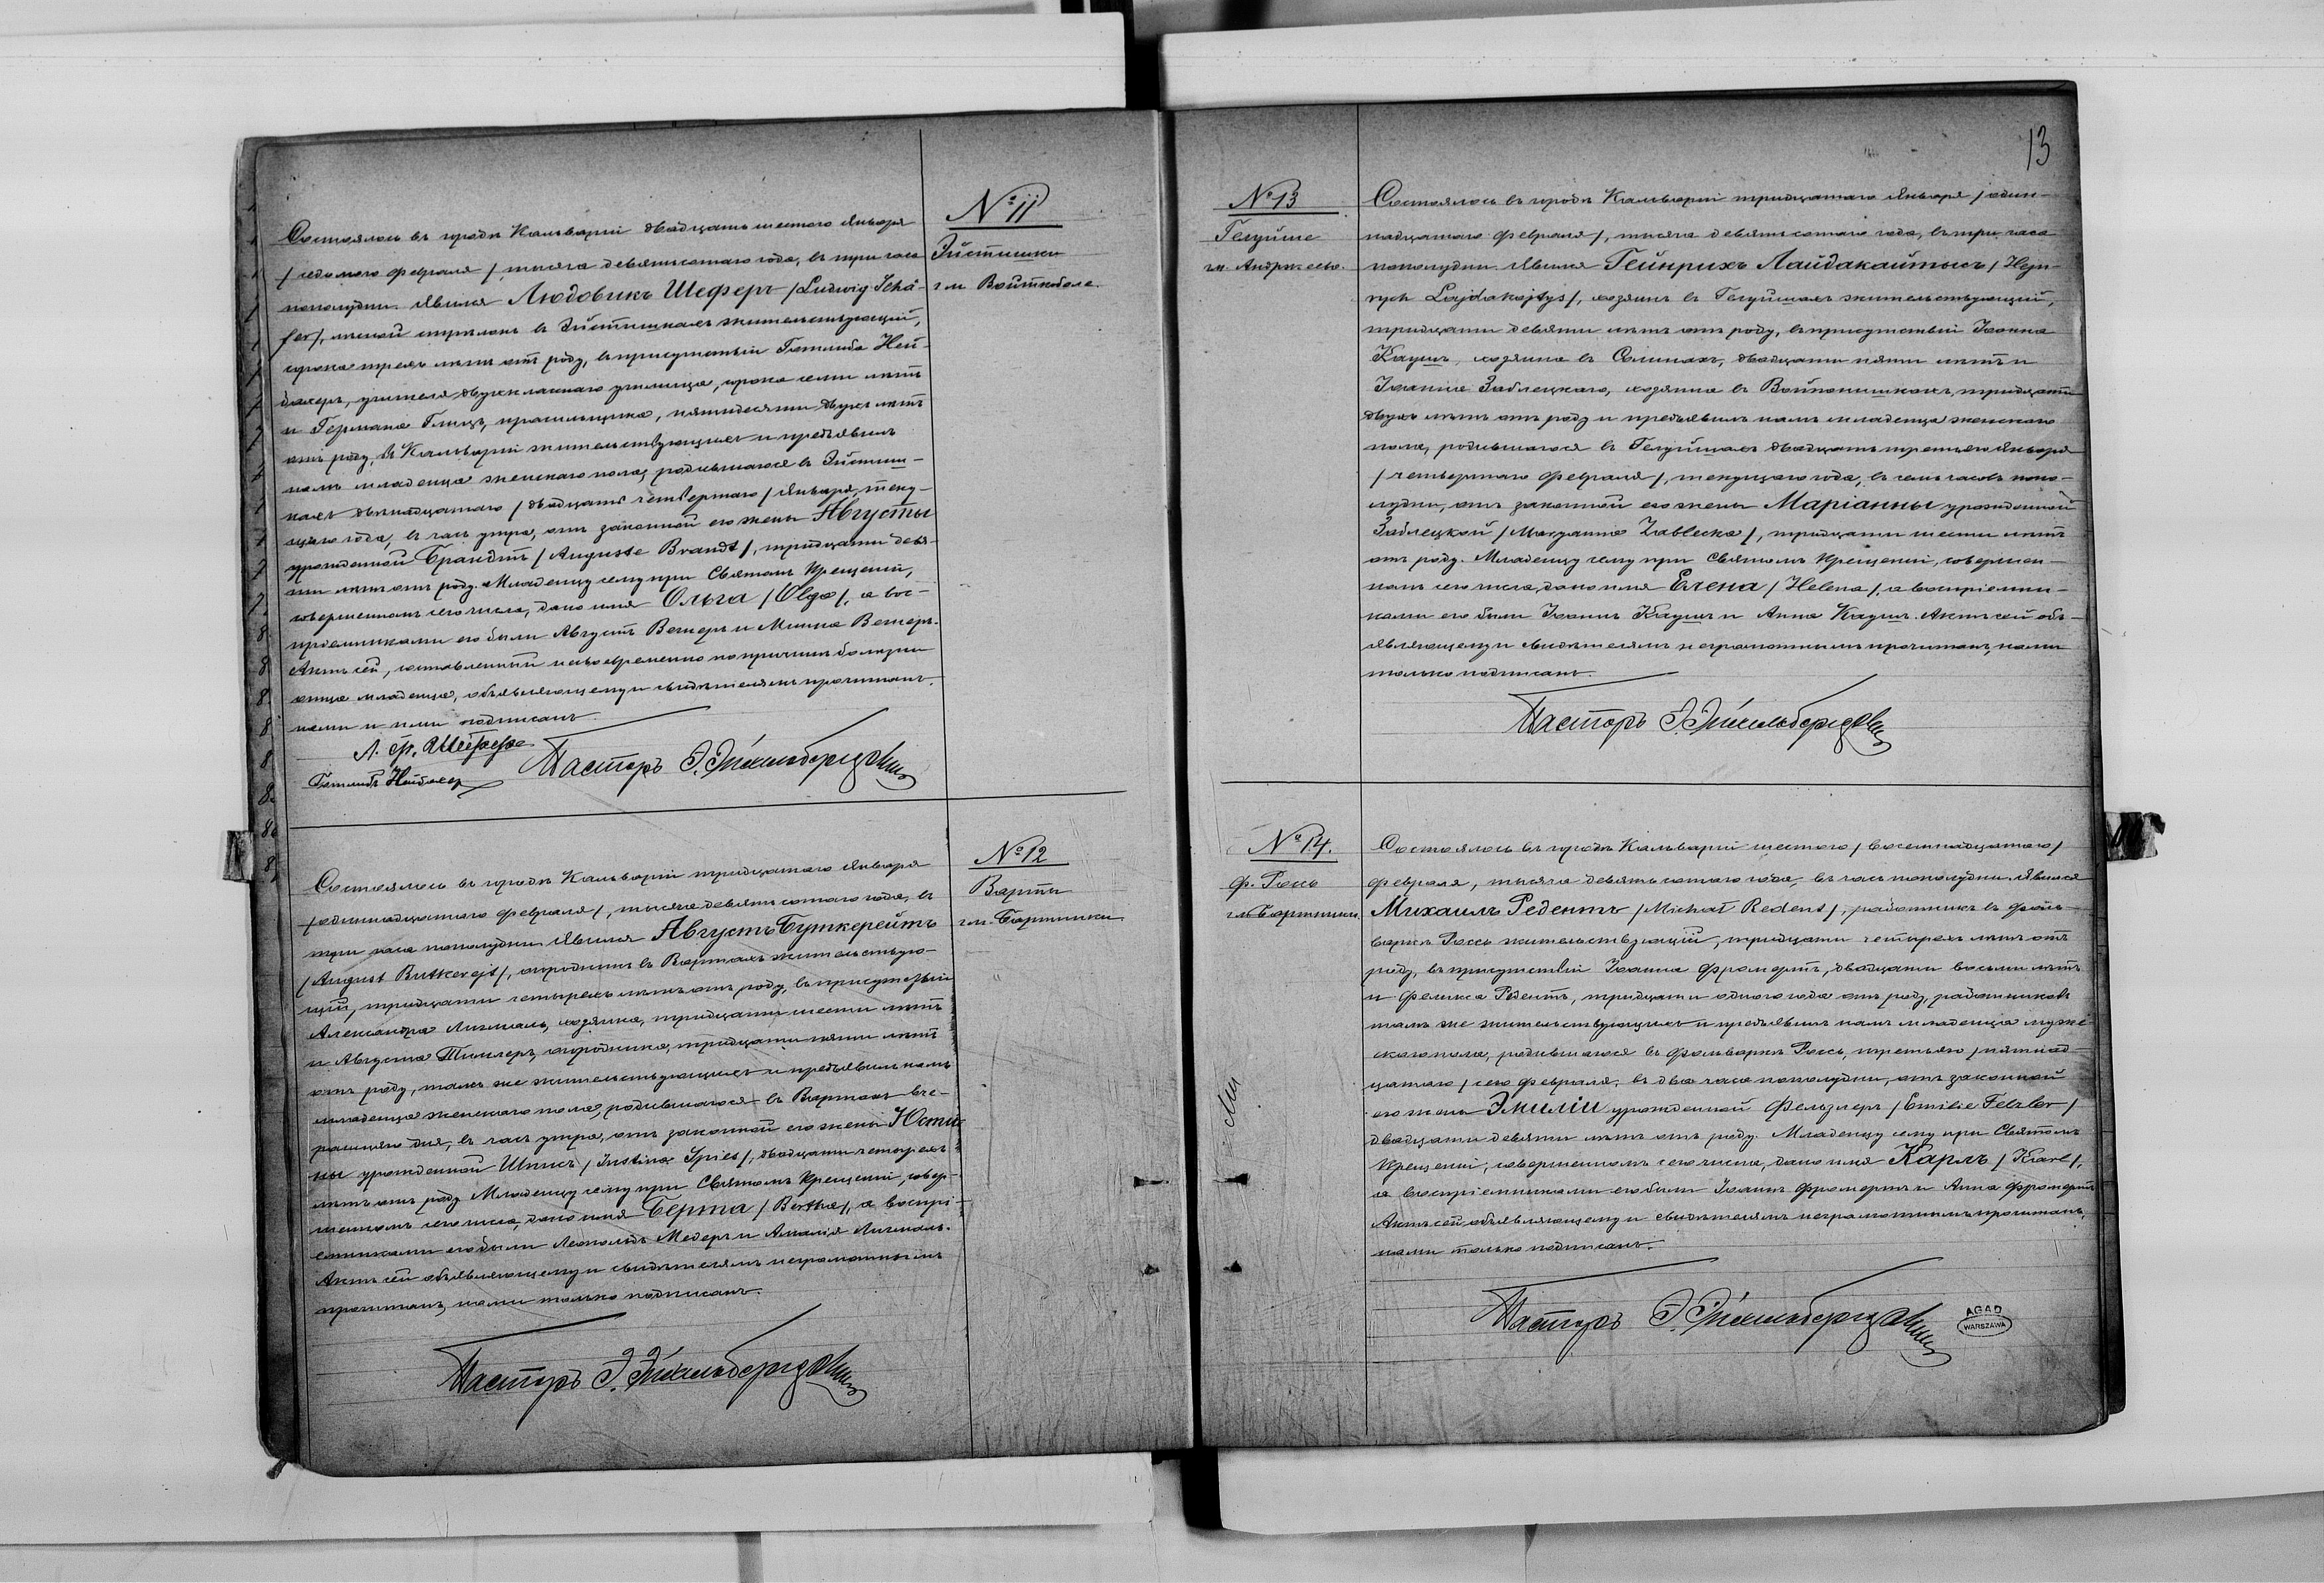 № 11
Эйстишки
гм. Войткоболе
Состоялось въ городѣ Кальваріи двадцать шестого Января
/седьмого Февраля/, тысяча девятисотаго года, въ три часа
пополудни. Явился Людовикъ Шеферъ /Ludwig Schä-
fer/, лѣсной стрѣлокъ въ Эйстишкахъ жительствующій,
сорока трехъ лѣтъ отъ роду, въ присутствіи Готлиба Ней-
бахеръ, учителя двухкласнаго училища, сорока семи лѣтъ
и Германа Глицъ, красильщика, пятидесяти двухъ лѣтъ
отъ роду, въ Кальваріи жительствующихъ и предъявилъ
намъ младенца женскаго пола, родившагося въ Эйстиш-
кахъ двѣнадцатаго /двадцать четвертаго/ Января, теку-
щаго года, въ часъ утра, отъ законной его жены Августы
урожденной Брандтъ /Auguste Brandt/, тридцати девя-
ти лѣтъ отъ роду. Младенцу сему при Святомъ Крещеніи,
совершенномъ сего числа, дано имя Ольга /Olga/, а вос-
пріемниками его были Августъ Вегнеръ и Минна Вегнеръ.
Актъ сей, составленный несвоевременно по причинѣ болѣзни
отца младенца, объявляющему и свидѣтелямъ прочитанъ,
нами и ими подписанъ.
Л. Ф. Шеферъ
Готлибъ Нейбахер Пасторъ Э.
№ 12
Варты
гм. Бартники
Состоялось въ городѣ Кальваріи тридцатаго Января
/одинадцатаго Февраля/, тысяча девятисотаго года, въ
три часа пополудни. Явился Августъ Буткерейтъ
/August Butkerejt/, огородникъ въ Вартахъ жительствую-
щій, тридцати четырехъ лѣтъ отъ роду, въ присутствіи
Александра Лихмаль, хозяина, тридцати шести лѣтъ
и Августа огородника, тридцати пяти лѣтъ
отъ роду, тамъ же жительствующихъ и предъявилъ намъ
младенца женскаго пола, родившагося въ Вартахъ вче-
рашняго дня, въ часъ утра, отъ законной его жены Юсти-
ны урожденной Шписъ /Justina Spies/, двадцати четырехъ
лѣтъ отъ роду. Младенцу сему при Святомъ Крещеніи, совер-
шенномъ сего числа, дано имя Берта /Bertha/, а воспрі-
емниками его были Леопольдъ Медеръ и Амалія Лихмаль.
Актъ сей объявляющему и свидѣтелямъ неграмотнымъ
прочитанъ, нами только подписанъ.
Пасторъ Э.
13
№ 13
Гелуйше
гм. Андржеево.
Состоялось въ городѣ Кальваріи тридцатаго Января /один-
надцатаго Февраля/, тысяча девятисотаго года, въ три часа
пополудни. Явился Гейнрихъ Лайдакайтысъ /Hejn-
rych Lajdakajtys/, хозяинъ въ Гелуйшахъ жительствующій,
тридцати девяти лѣтъ отъ роду, въ присутствіи Іоанна
Каушъ, хозяина въ двадцати пяти лѣтъ и
Заблецкаго, хозяина въ тридцати
двухъ лѣтъ отъ роду и предъявилъ намъ младенца женскаго
пола, родившагося въ Гелуйшахъ двадцать третьяго Января
/четвертаго Февраля/, текущаго года, въ семь часовъ попо-
лудни, отъ законной его жены Маріанны урожденной
Заблецкой /Maryanna Zablecka/, тридцати шести лѣтъ
отъ роду. Младенцу сему при Святомъ Крещеніи, совершен-
номъ сего числа, дано имя Елена /Helena/, а воспріемни-
ками его были Іоаннъ Каушъ и Анна Каушъ. Актъ сей объ-
являющему и свидѣтелямъ неграмотнымъ прочитанъ, нами
только подписанъ.
Пасторъ Э.
№ 14.
ф. Россь
гм. Бартники.
Состоялось въ городѣ Кальваріи шестого /восемнадцатаго/
Февраля, тысяча девятьсотаго года, въ часъ пополудни. Явился
Михаилъ Редентъ /Michał Redent/, работникъ въ фоль-
варкѣ Россь жительствующій, тридцати четырехъ лѣтъ отъ
роду, въ присутствіи Іоанна Фромертъ, двадцати восьми лѣтъ
и Феликса Редентъ, тридцати одного года отъ роду, работниковъ
тамъ же жительствующихъ и предъявилъ намъ младенца муже-
скаго пола, родившагося въ фольваркѣ Россь, третьяго /пятнад-
цатаго/ сего Февраля, въ два часа пополудни, отъ законной
его жены Эмиліи урожденной Фельзлеръ /Emilie Felzler/
двадцати девяти лѣтъ отъ роду. Младенцу сему при Святомъ
Крещеніи, совершенномъ сего числа, дано имя Карлъ /Karl/,
а воспріемниками его были Іоаннъ Фромертъ и Анна Фромертъ.
Актъ сей объявляющему и свидѣтелямъ неграмотнымъ прочитанъ,
нами только подписанъ.
Пасторъ Э.
AGAD
WARSZAWA